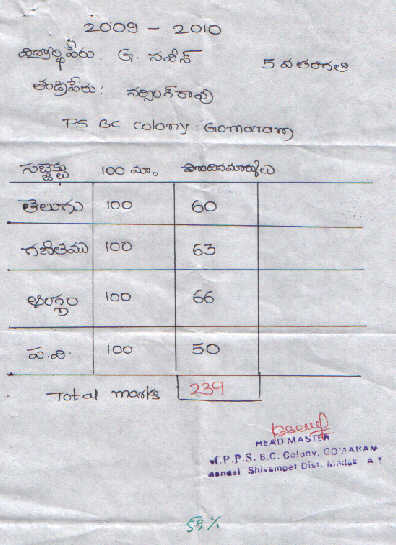 2009 - 2010
విద్యార్థిపేరు G. నవీన్ 5 వతరగతి
తండ్రిపేరు: నర్సింగ్ రావు
P.S BC colony Gomaram
సబ్జెక్టు 100 మా. పొందినమార్కులు
తెలుగు 100 60
గణితము 100 63
ఆంగ్లం 100 66
ప.వి. 100 50
Total marks 239
HEAD MASTER
M.P.P.S. B.C. Colony, GOMARAM
Mandal Shivampet Dist. Medak A.P
59%